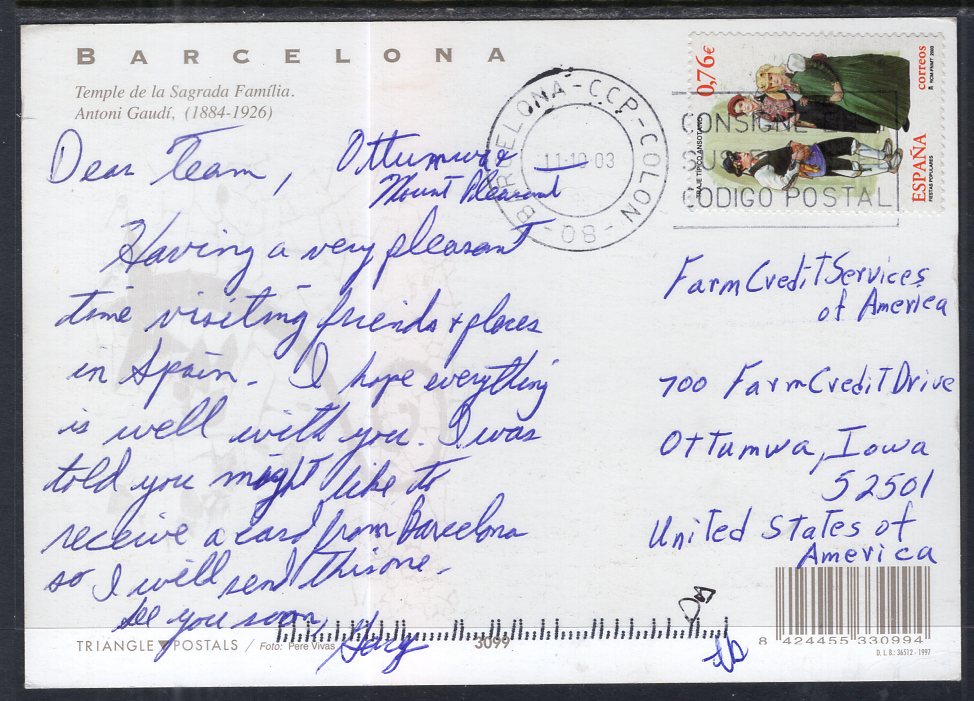 BARCELONA
Temple de la Sagrada Família.
Antoni Gaudí, (1884-1926)
0,76€
correos
ESPAÑA
FIESTAS POPULARES
TRAJE TIPICO ANSOTANO
BARCELONA-CCP-COLON
-08-
11-10 03
CONSIGNE EL
SU
CODIGO POSTAL
Dear Team, Ottumwa
Mount Pleasant
Having a very pleasant
time visiting friends + places
in Spain. I hope everything
is well with you. I was
told you might like to
receive a card from Barcelona
so I will send this one.
See you soon,
Gary
Farm Credit Services
of America
700 Farm Credit Drive
Ottumwa, Iowa
52501
United States of
America
TRIANGLE POSTALS / Foto: Pere Vivas
3099
8 424455 330994
D. L. B.: 36512 - 1997